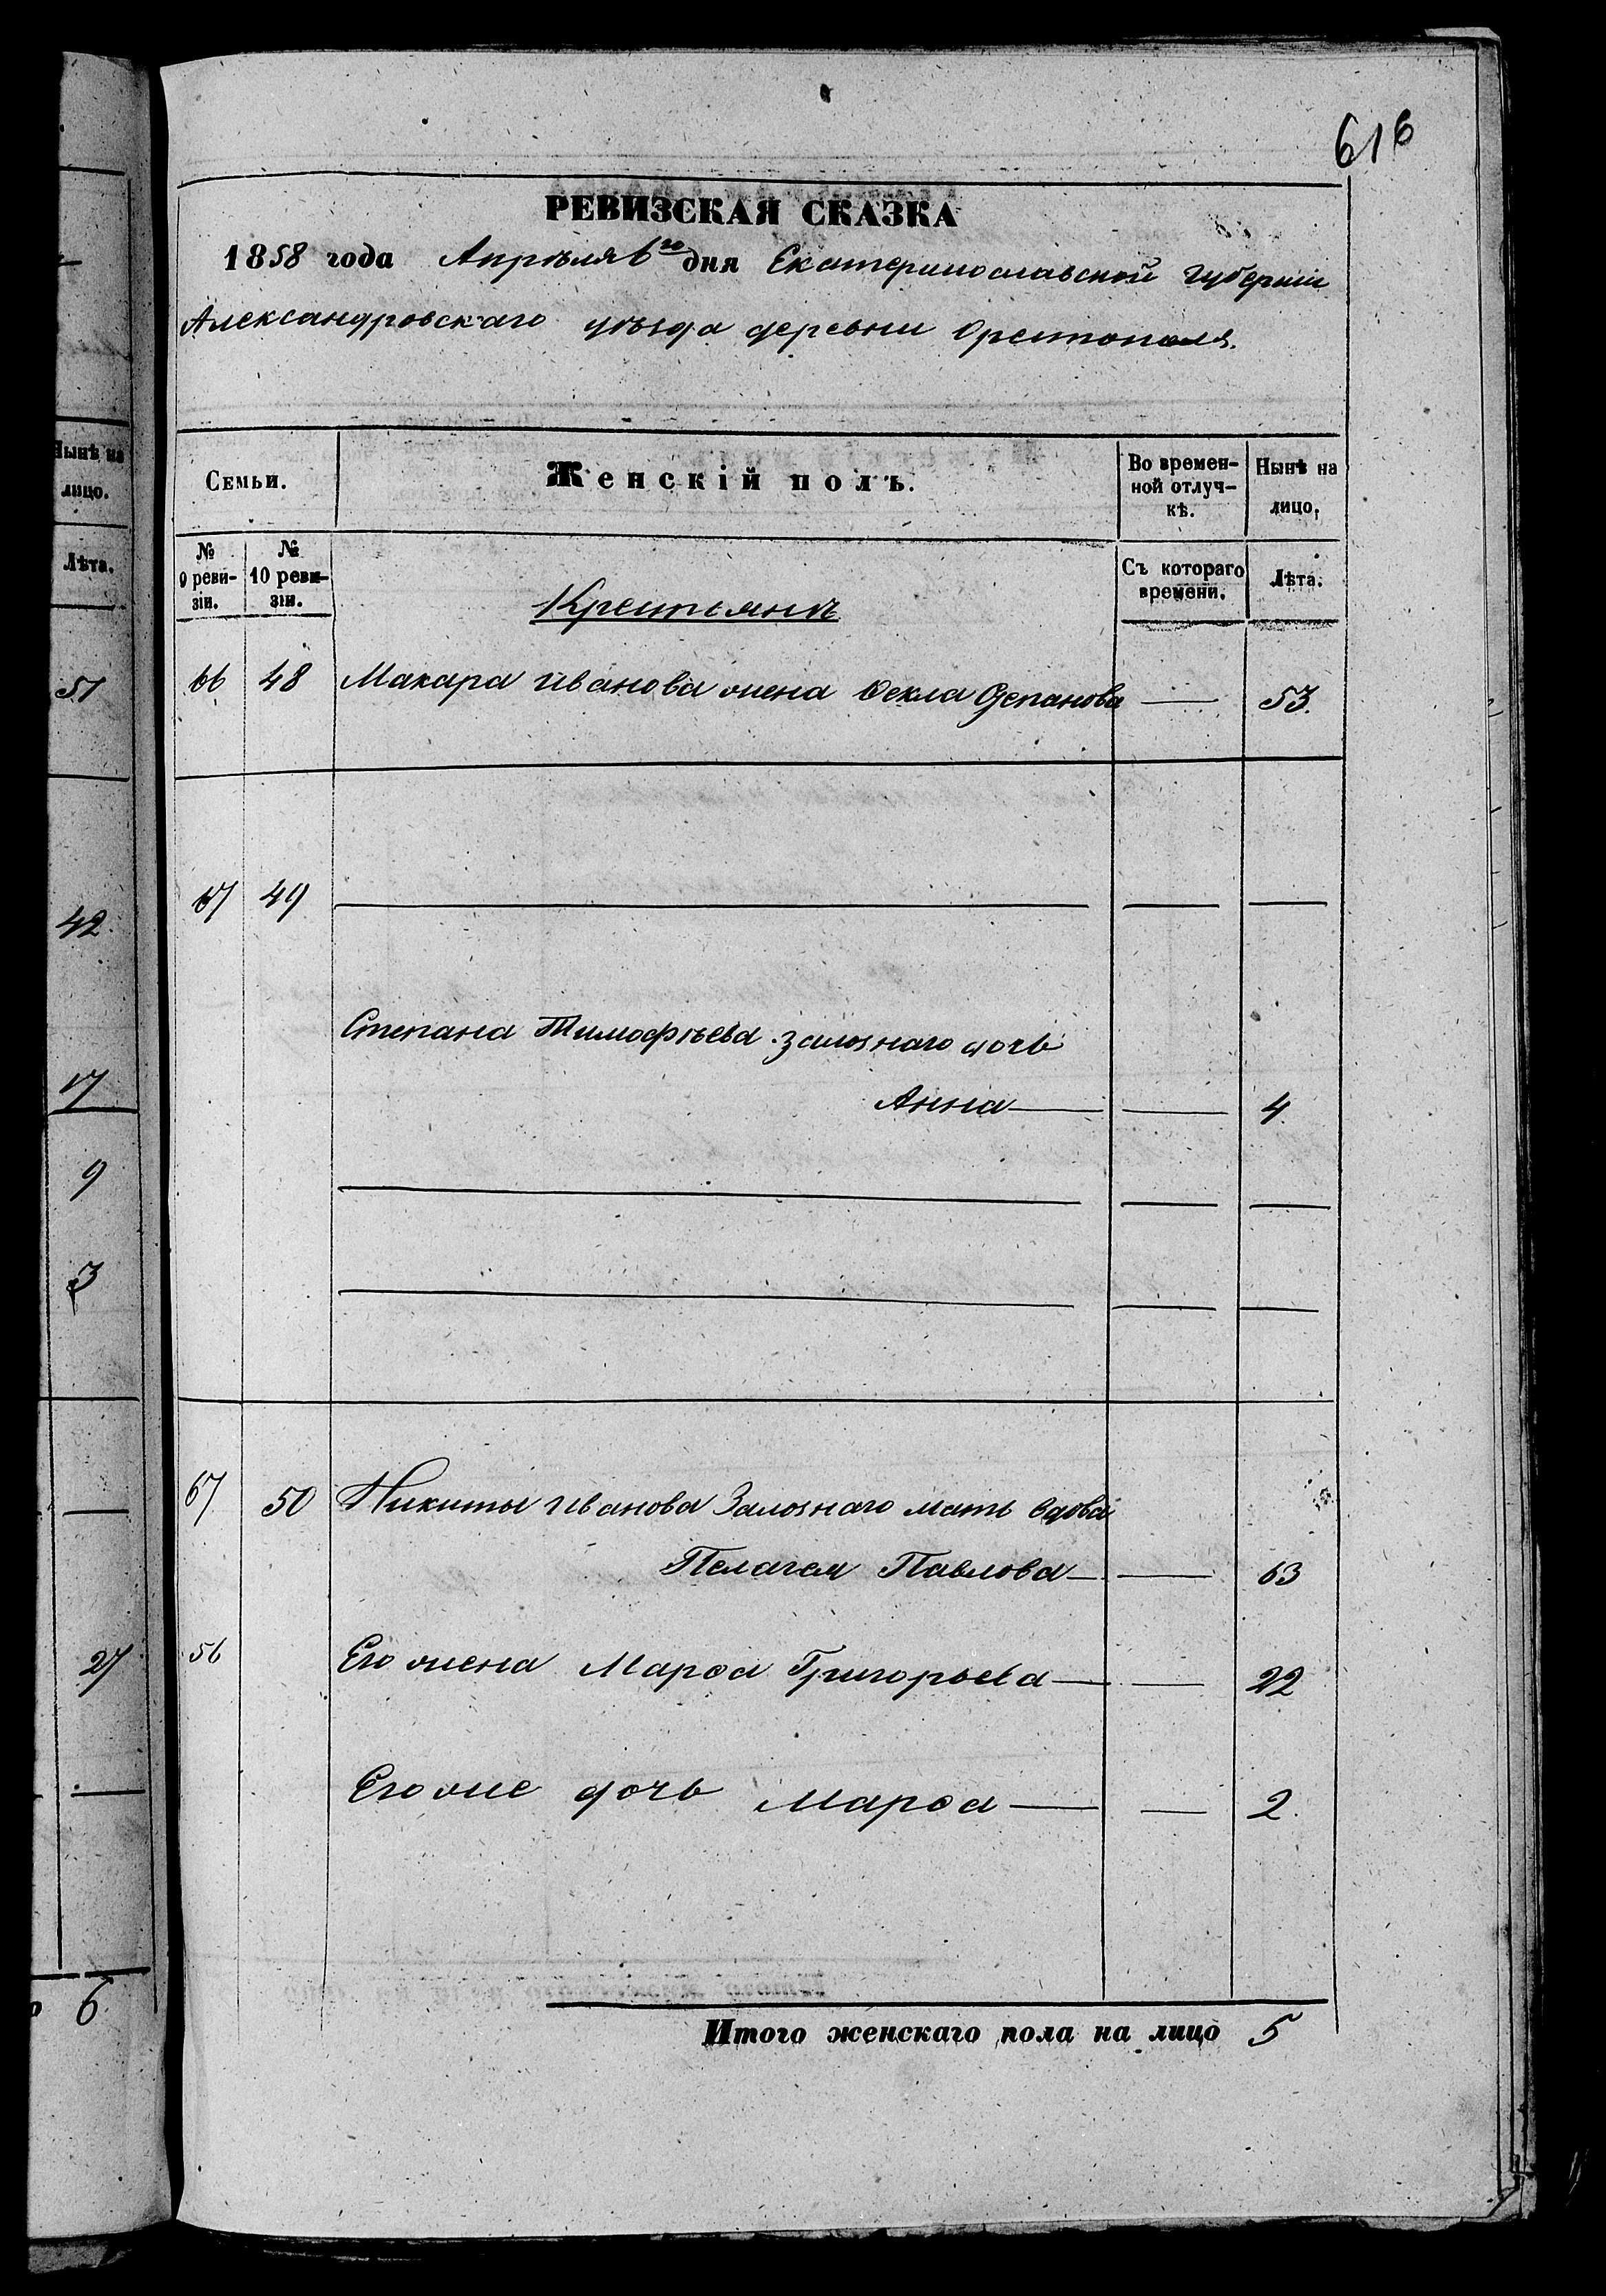 616
РЕВИЗСКАЯ СКАЗКА
1858 года Апрѣля 6го дня Екатеринославской губернии
Александровскаго уѣзда деревни Орестополя.
Семьи.
Женскій полъ.
Во времен-
ной отлуч-
кѣ.
Нынѣ на
лицо.
№
9 реви-
зіи.
№
10 реви-
зіи.
Съ котораго
времени.
Лѣта.
Крестьянъ
66 48 Макара Иванова жена Ѳекла Степанова — 53.
67 49 — — —
Степана Тимофѣева Залознаго дочь
Анна — — 4.
— — —
— — —
67 50 Никиты Иванова Залознаго мать вдова
Пелагея Павлова — — 63
56 Его жена Марѳа Григорьева — — 22
Его же дочь Марѳа — — 2.
Итого женскаго пола на лицо 5
Нынѣ на
лицо.
Лѣта.
51
42.
17
9
3
—
27
—
6.